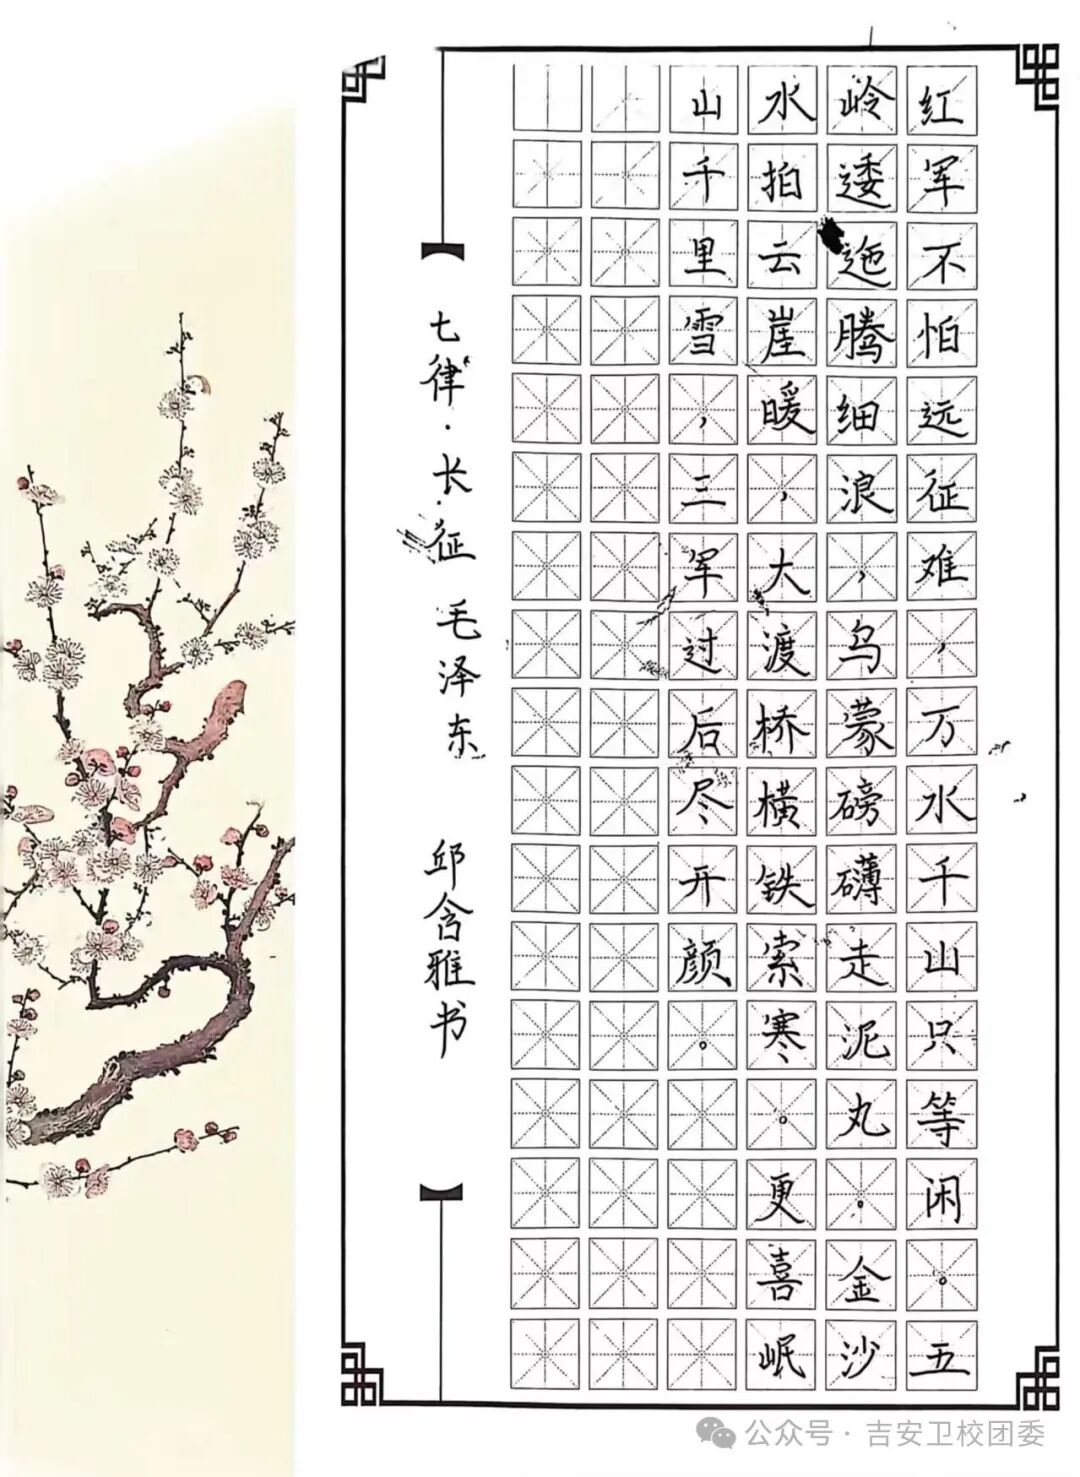 红军不怕远征难，万水千山只等闲。五
岭逶迤腾细浪，乌蒙磅礴走泥丸。金沙
水拍云崖暖，大渡桥横铁索寒。更喜岷
山千里雪，三军过后尽开颜。
七律·长征 毛泽东 邱含雅书
公众号·吉安卫校团委